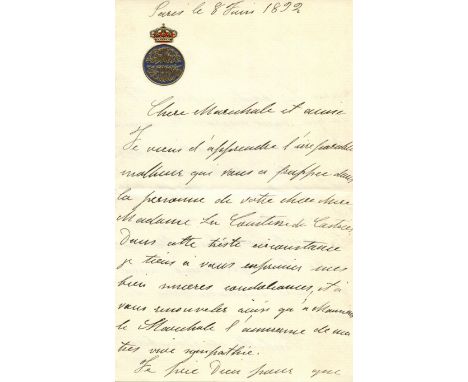 Paris le 8 Juin 1892
Chere Marechale et amie
Je viens d'apprendre l'irreparable
malheur qui vous a frappée dans
la personne de votre chere Mere
Madame La Comtesse de Castries
Dans cette triste circonstance
je tiens à vous exprimer mes
bien sincères condoléances, et à
vous renouveler ainsi qu'à Monsieur
le Maréchal l'assurance de ma
très vive sympathie.
Je prie Dieu pour que